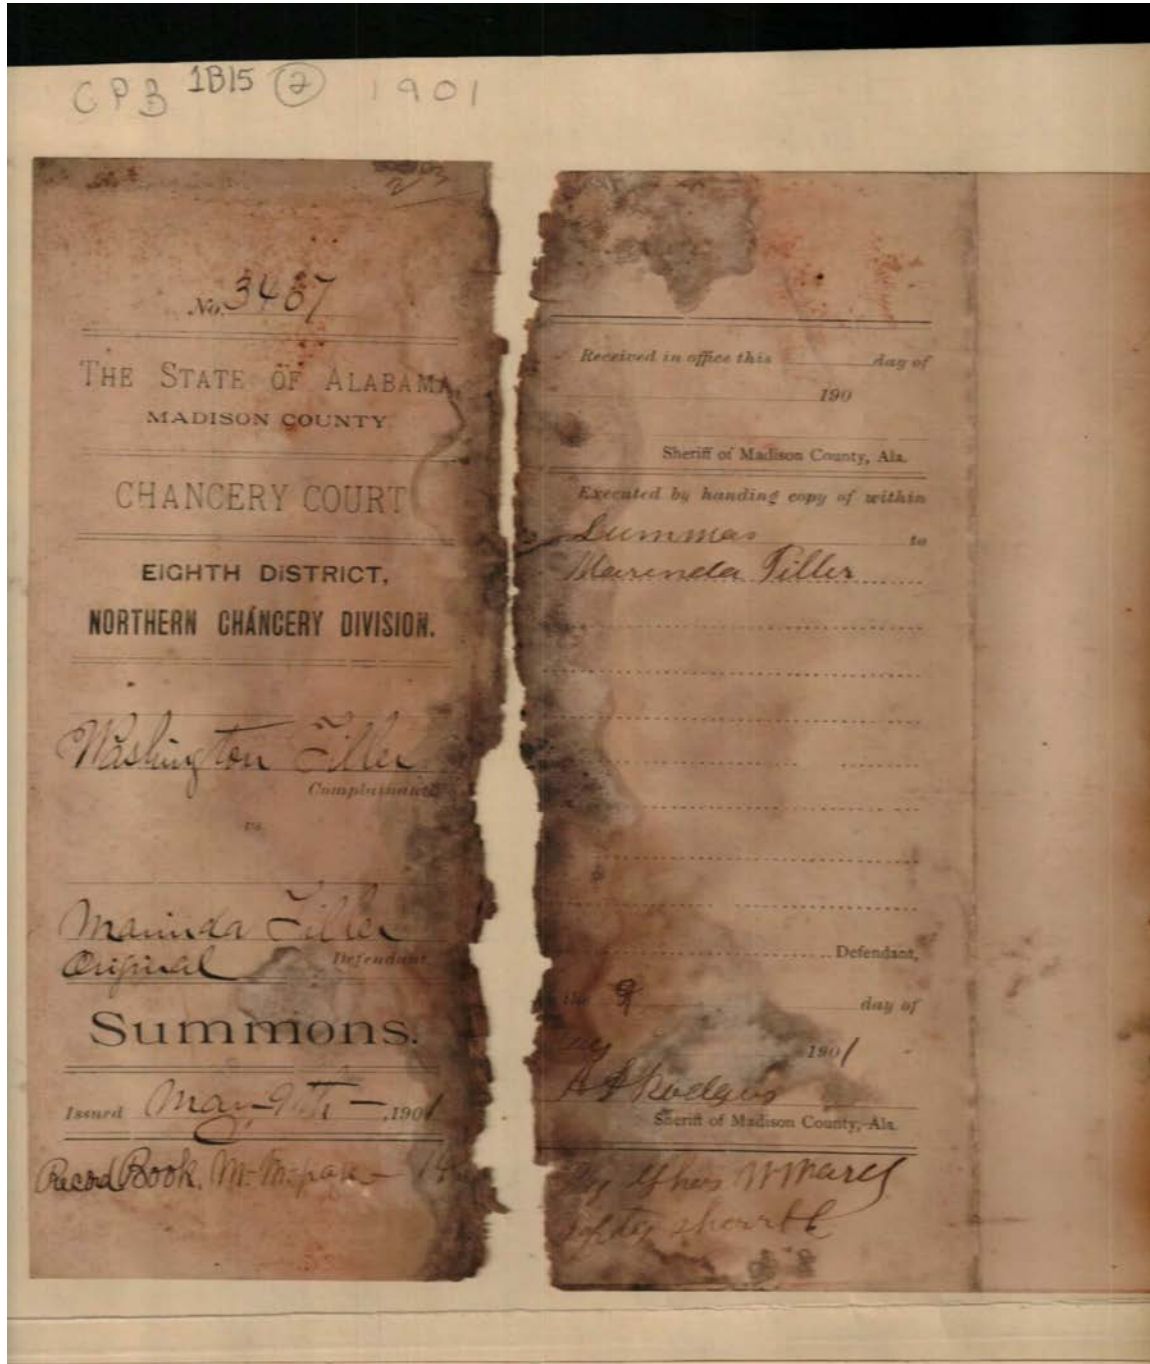 CPB 1B15 2 1901
No. 3467
THE STATE OF ALABAMA,
MADISON COUNTY.
CHANCERY COURT
EIGHTH DISTRICT,
NORTHERN CHANCERY DIVISION.
Washington Tiller
Complainant
vs
Marinda Tiller
Defendant.
Original
Summons.
Issued May 9th 1901
Record Book. M. M. page
Received in office this day of
190
Sheriff of Madison County, Ala.
Executed by handing copy of within
Summas to
Marinda Tiller
Defendant,
the 9 day of
1901
Rodgers
Sheriff of Madison County, Ala.
By